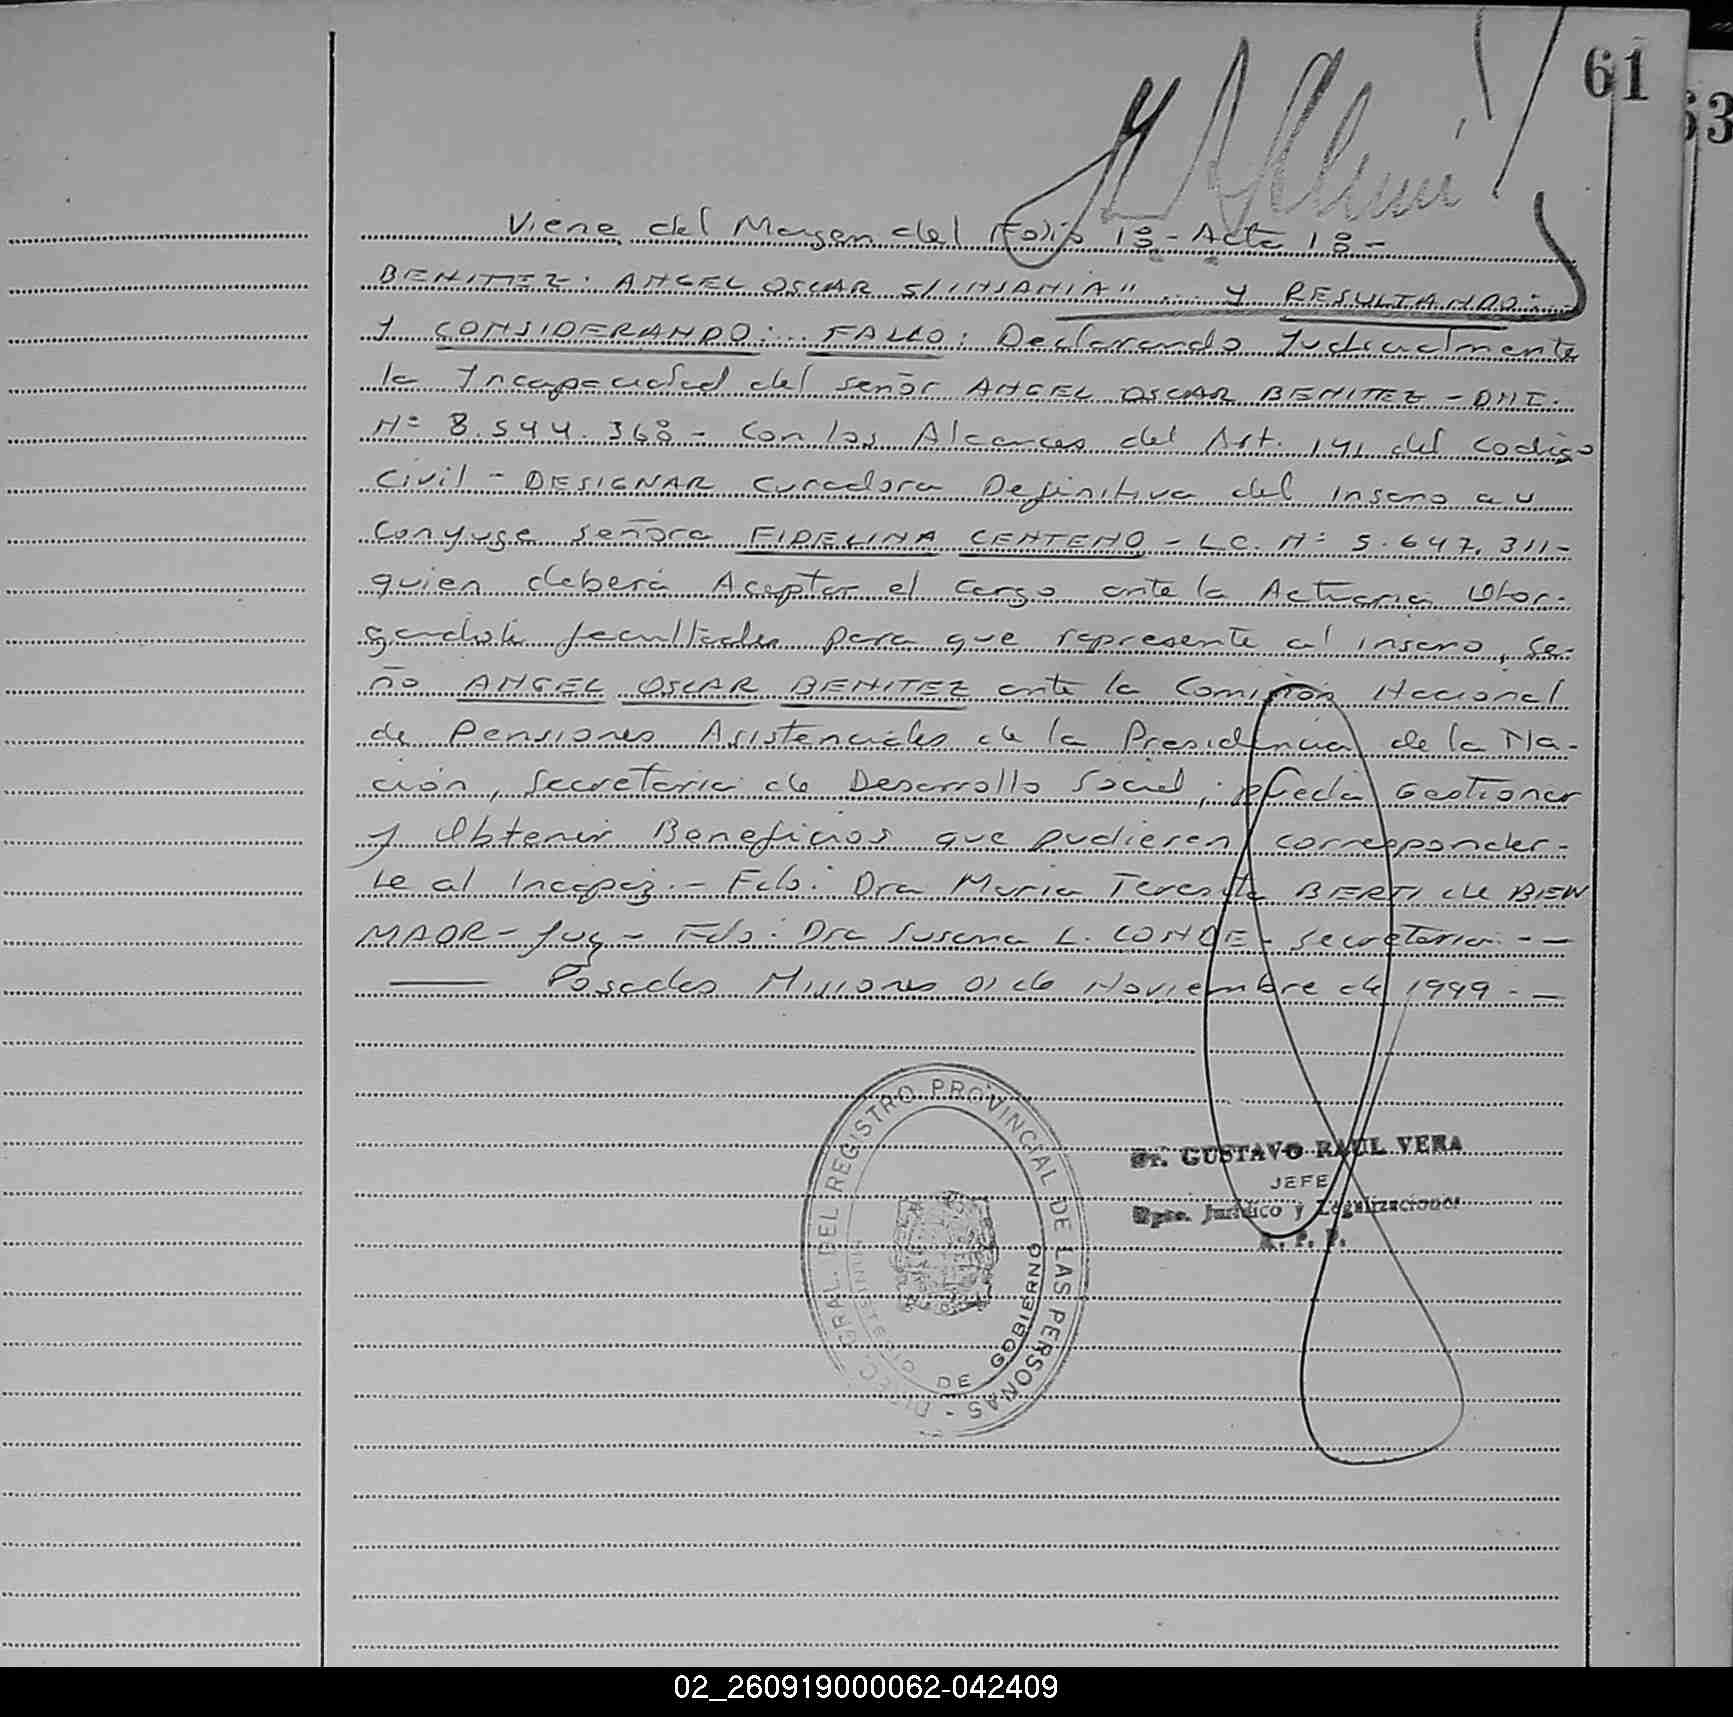 61
63
Viene del Margen del Folio 18 - Acta 18 -
BENITEZ. ANGEL OSCAR S/INSANIA" ... y RESULTANDO: ...
y CONSIDERANDO: ... FALLO: Declarando Judicialmente
la Incapacidad del señor ANGEL OSCAR BENITEZ - DNI.
Nº 8.544.368 - Con los Alcances del Art. 141 del Codigo
Civil - DESIGNAR Curadora Definitiva del insano a u
Conyuge señora FIDELINA CENTENO - LC. Nº 5.647.311 -
quien deberá Aceptar el Cargo ante la Actuaria Otor-
gandole facultades para que represente al insano, Se-
ño ANGEL OSCAR BENITEZ ante la Comisión Nacional
de Pensiones Asistenciales de la Presidencia de la Na-
ción, Secretaria de Desarrollo Social, pueda Gestionar
y Obtener Beneficios que pudieren corresponder-
le al Incapaz. - Fdo: Dra Maria Teresita BERTI de BIEN
MAOR - Juez - Fdo: Dra Susana L. CONDE - Secretaria. - —
— Posadas Misiones 01 de Noviembre de 1999. - —
DIREC. GRAL. DEL REGISTRO PROVINCIAL DE LAS PERSONAS -
MINISTERIO DE GOBIERNO
Dr. GUSTAVO RAUL VERA
JEFE
Dpto. Jurídico y Legalizaciones
R. P. P.
02_260919000062-042409